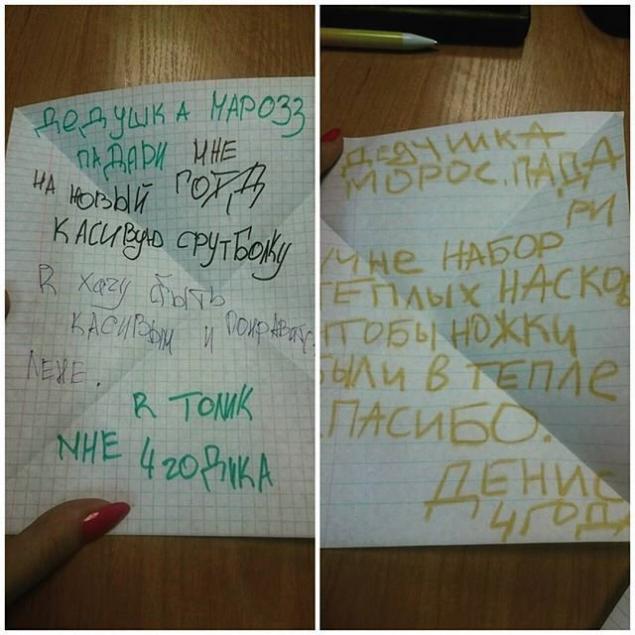 ДОДУШКА МАРОЗЗ
ПАДАРИ МНЕ
НА НОВЫЙ ГОТД
КАСИВУЮ СРУТБОЛКУ
R ХАЧУ БЫТЬ
КАСИВЫМ И ПОНРАВИТС
ЛЕНЕ.
R ТОЛИК
МНЕ 4 ГОДИКА
ДЕДУШКА
МОРОС. ПАДА
РИ
МНЕ НАБОР
ТЕПЛЫХ НАСКОВ
ЧТОБЫ НОЖКИ
БЫЛИ В ТЕПЛЕ
СПАСИБО.
ДЕНИС
4 ГОДА